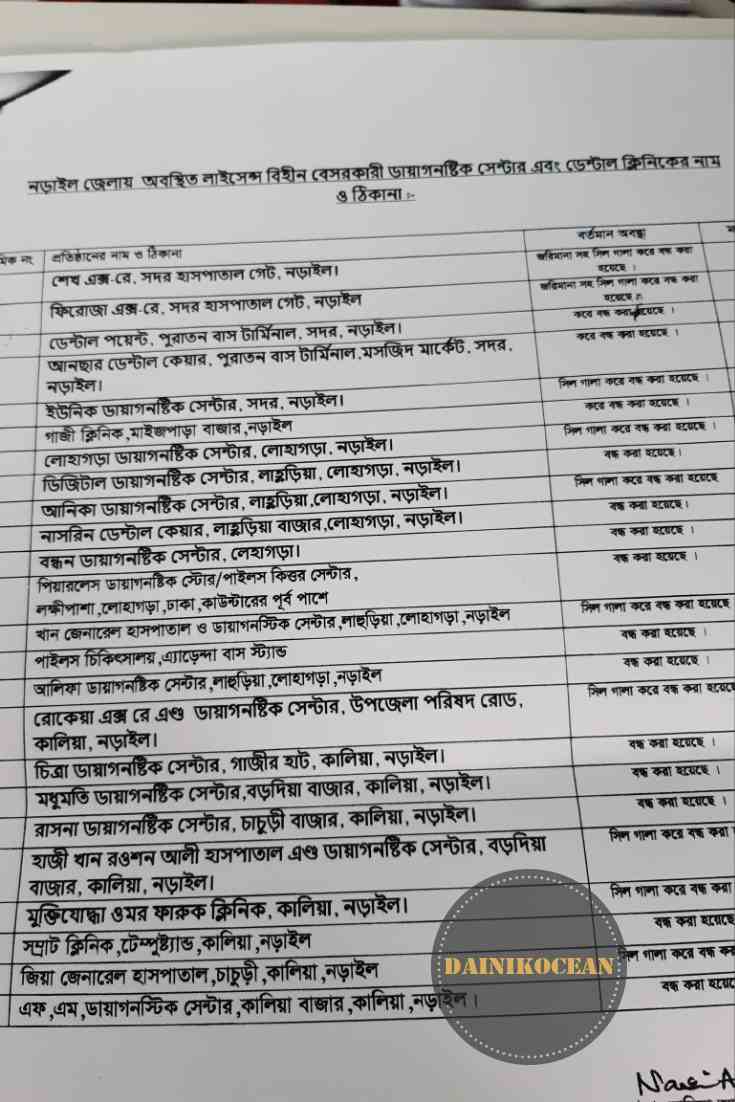 নড়াইল জেলায় অবস্থিত লাইসেন্স বিহীন বেসরকারী ডায়াগনষ্টিক সেন্টার এবং ডেন্টাল ক্লিনিকের নাম
ও ঠিকানা :-
মিক নং প্রতিষ্ঠানের নাম ও ঠিকানা বর্তমান অবস্থা
শেখ এক্স-রে, সদর হাসপাতাল গেট, নড়াইল। জরিমানা সহ সিল গালা করে বন্ধ করা
হয়েছে ।
ফিরোজা এক্স-রে, সদর হাসপাতাল গেট, নড়াইল জরিমানা সহ সিল গালা করে বন্ধ করা
হয়েছে ।
ডেন্টাল পয়েন্ট, পুরাতন বাস টার্মিনাল, সদর, নড়াইল। করে বন্ধ করা হয়েছে ।
আনছার ডেন্টাল কেয়ার, পুরাতন বাস টার্মিনাল,মসজিদ মার্কেট, সদর, করে বন্ধ করা হয়েছে ।
নড়াইল।
ইউনিক ডায়াগনষ্টিক সেন্টার, সদর, নড়াইল। সিল গালা করে বন্ধ করা হয়েছে ।
গাজী ক্লিনিক,মাইজপাড়া বাজার,নড়াইল করে বন্ধ করা হয়েছে ।
লোহাগড়া ডায়াগনষ্টিক সেন্টার, লোহাগড়া, নড়াইল। সিল গালা করে বন্ধ করা হয়েছে ।
ডিজিটাল ডায়াগনষ্টিক সেন্টার, লাহুড়িয়া, লোহাগড়া, নড়াইল। বন্ধ করা হয়েছে ।
আনিকা ডায়াগনষ্টিক সেন্টার, লাহুড়িয়া,লোহাগড়া, নড়াইল। সিল গালা করে বন্ধ করা হয়েছে
নাসরিন ডেন্টাল কেয়ার, লাহুড়িয়া বাজার,লোহাগড়া, নড়াইল। বন্ধ করা হয়েছে ।
বন্ধন ডায়াগনষ্টিক সেন্টার, লেহাগড়া। বন্ধ করা হয়েছে ।
পিয়ারলেস ডায়াগনষ্টিক স্টোর/পাইলস কিত্তর সেন্টার, বন্ধ করা হয়েছে ।
লক্ষীপাশা,লোহাগড়া,ঢাকা,কাউন্টারের পূর্ব পাশে
খান জেনারেল হাসপাতাল ও ডায়াগনস্টিক সেন্টার,লাহুড়িয়া,লোহাগড়া,নড়াইল সিল গালা করে বন্ধ করা হয়েছে
পাইলস চিকিৎসালয়,এ্যাড়েন্দা বাস স্ট্যান্ড বন্ধ করা হয়েছে ।
আলিফা ডায়াগনষ্টিক সেন্টার,লাহুড়িয়া,লোহাগড়া,নড়াইল বন্ধ করা হয়েছে ।
রোকেয়া এক্স রে এণ্ড ডায়াগনষ্টিক সেন্টার, উপজেলা পরিষদ রোড, সিল গালা করে বন্ধ করা হয়েছে
কালিয়া, নড়াইল।
চিত্রা ডায়াগনষ্টিক সেন্টার, গাজীর হাট, কালিয়া, নড়াইল। বন্ধ করা হয়েছে ।
মধুমতি ডায়াগনষ্টিক সেন্টার,বড়দিয়া বাজার, কালিয়া, নড়াইল। বন্ধ করা হয়েছে ।
রাসনা ডায়াগনষ্টিক সেন্টার, চাচুড়ী বাজার, কালিয়া, নড়াইল। বন্ধ করা হয়েছে ।
হাজী খান রওশন আলী হাসপাতাল এণ্ড ডায়াগনষ্টিক সেন্টার, বড়দিয়া সিল গালা করে বন্ধ করা
বাজার, কালিয়া, নড়াইল।
মুক্তিযোদ্ধা ওমর ফারুক ক্লিনিক, কালিয়া, নড়াইল। সিল গালা করে বন্ধ করা
সম্রাট ক্লিনিক,টেম্পুষ্ট্যান্ড,কালিয়া,নড়াইল বন্ধ করা হয়েছে
জিয়া জেনারেল হাসপাতাল,চাচুড়ী,কালিয়া,নড়াইল সিল গালা করে বন্ধ কর
এফ,এম,ডায়াগনস্টিক সেন্টার,কালিয়া বাজার,কালিয়া,নড়াইল । বন্ধ করা হয়েছে
DAINIKOCEAN